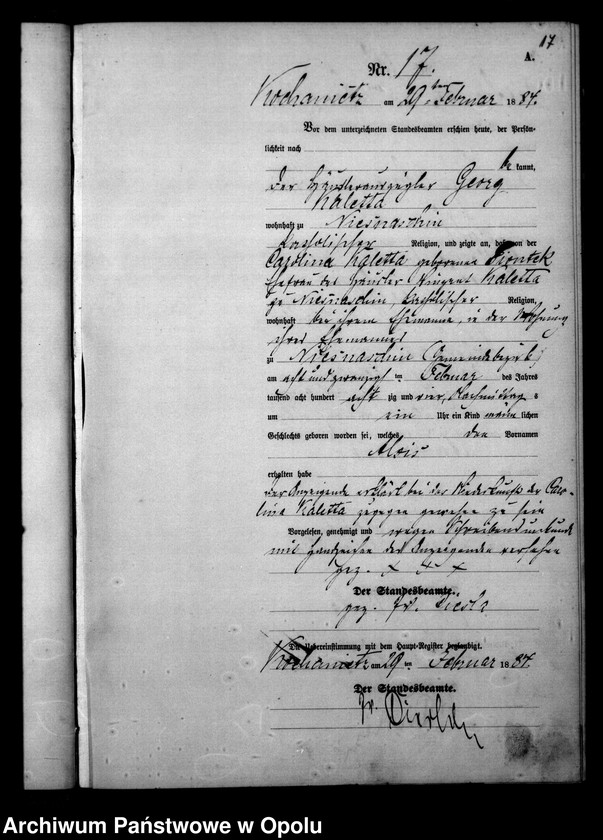 17
A.
Nr. 17.
Kochanietz am 29ten Februar 1884.
Vor dem unterzeichneten Standesbeamten erschien heute, der Persön-
lichkeit nach
be kannt,
der Häuslerauszügler Georg
Kaletta
wohnhaft zu Niesnaschin
katholischer Religion, und zeigte an, daß von der
Carolina Kaletta geborenen Piontek
Ehefrau des Häusler Vinzent Kaletta
zu Niesnaschin, katholischer Religion,
wohnhaft bei ihrem Ehemanne, in der Wohnung
ihres Ehemannes
zu Niesnaschin
am acht und zwanzigs ten Februar des Jahres
tausend acht hundert acht zig und vier, Nachmittag s
um ein Uhr ein Kind männ lichen
Geschlechts geboren worden sei, welches den Vornamen
Alois
erhalten habe
der Anzeigende erklärt bei der Niederkunft der Caro-
lina Kaletta zugegen gewesen zu sein
Vorgelesen, genehmigt und wegen Schreibensunkunde
mit Handzeichen des Anzeigenden versehen
gez. x x x
Der Standesbeamte.
gez.
Die Uebereinstimmung mit dem Haupt-Register beglaubigt.
Kochanietz am 29 ten Februar 1884.
Der Standesbeamte.
Archiwum Państwowe w Opolu